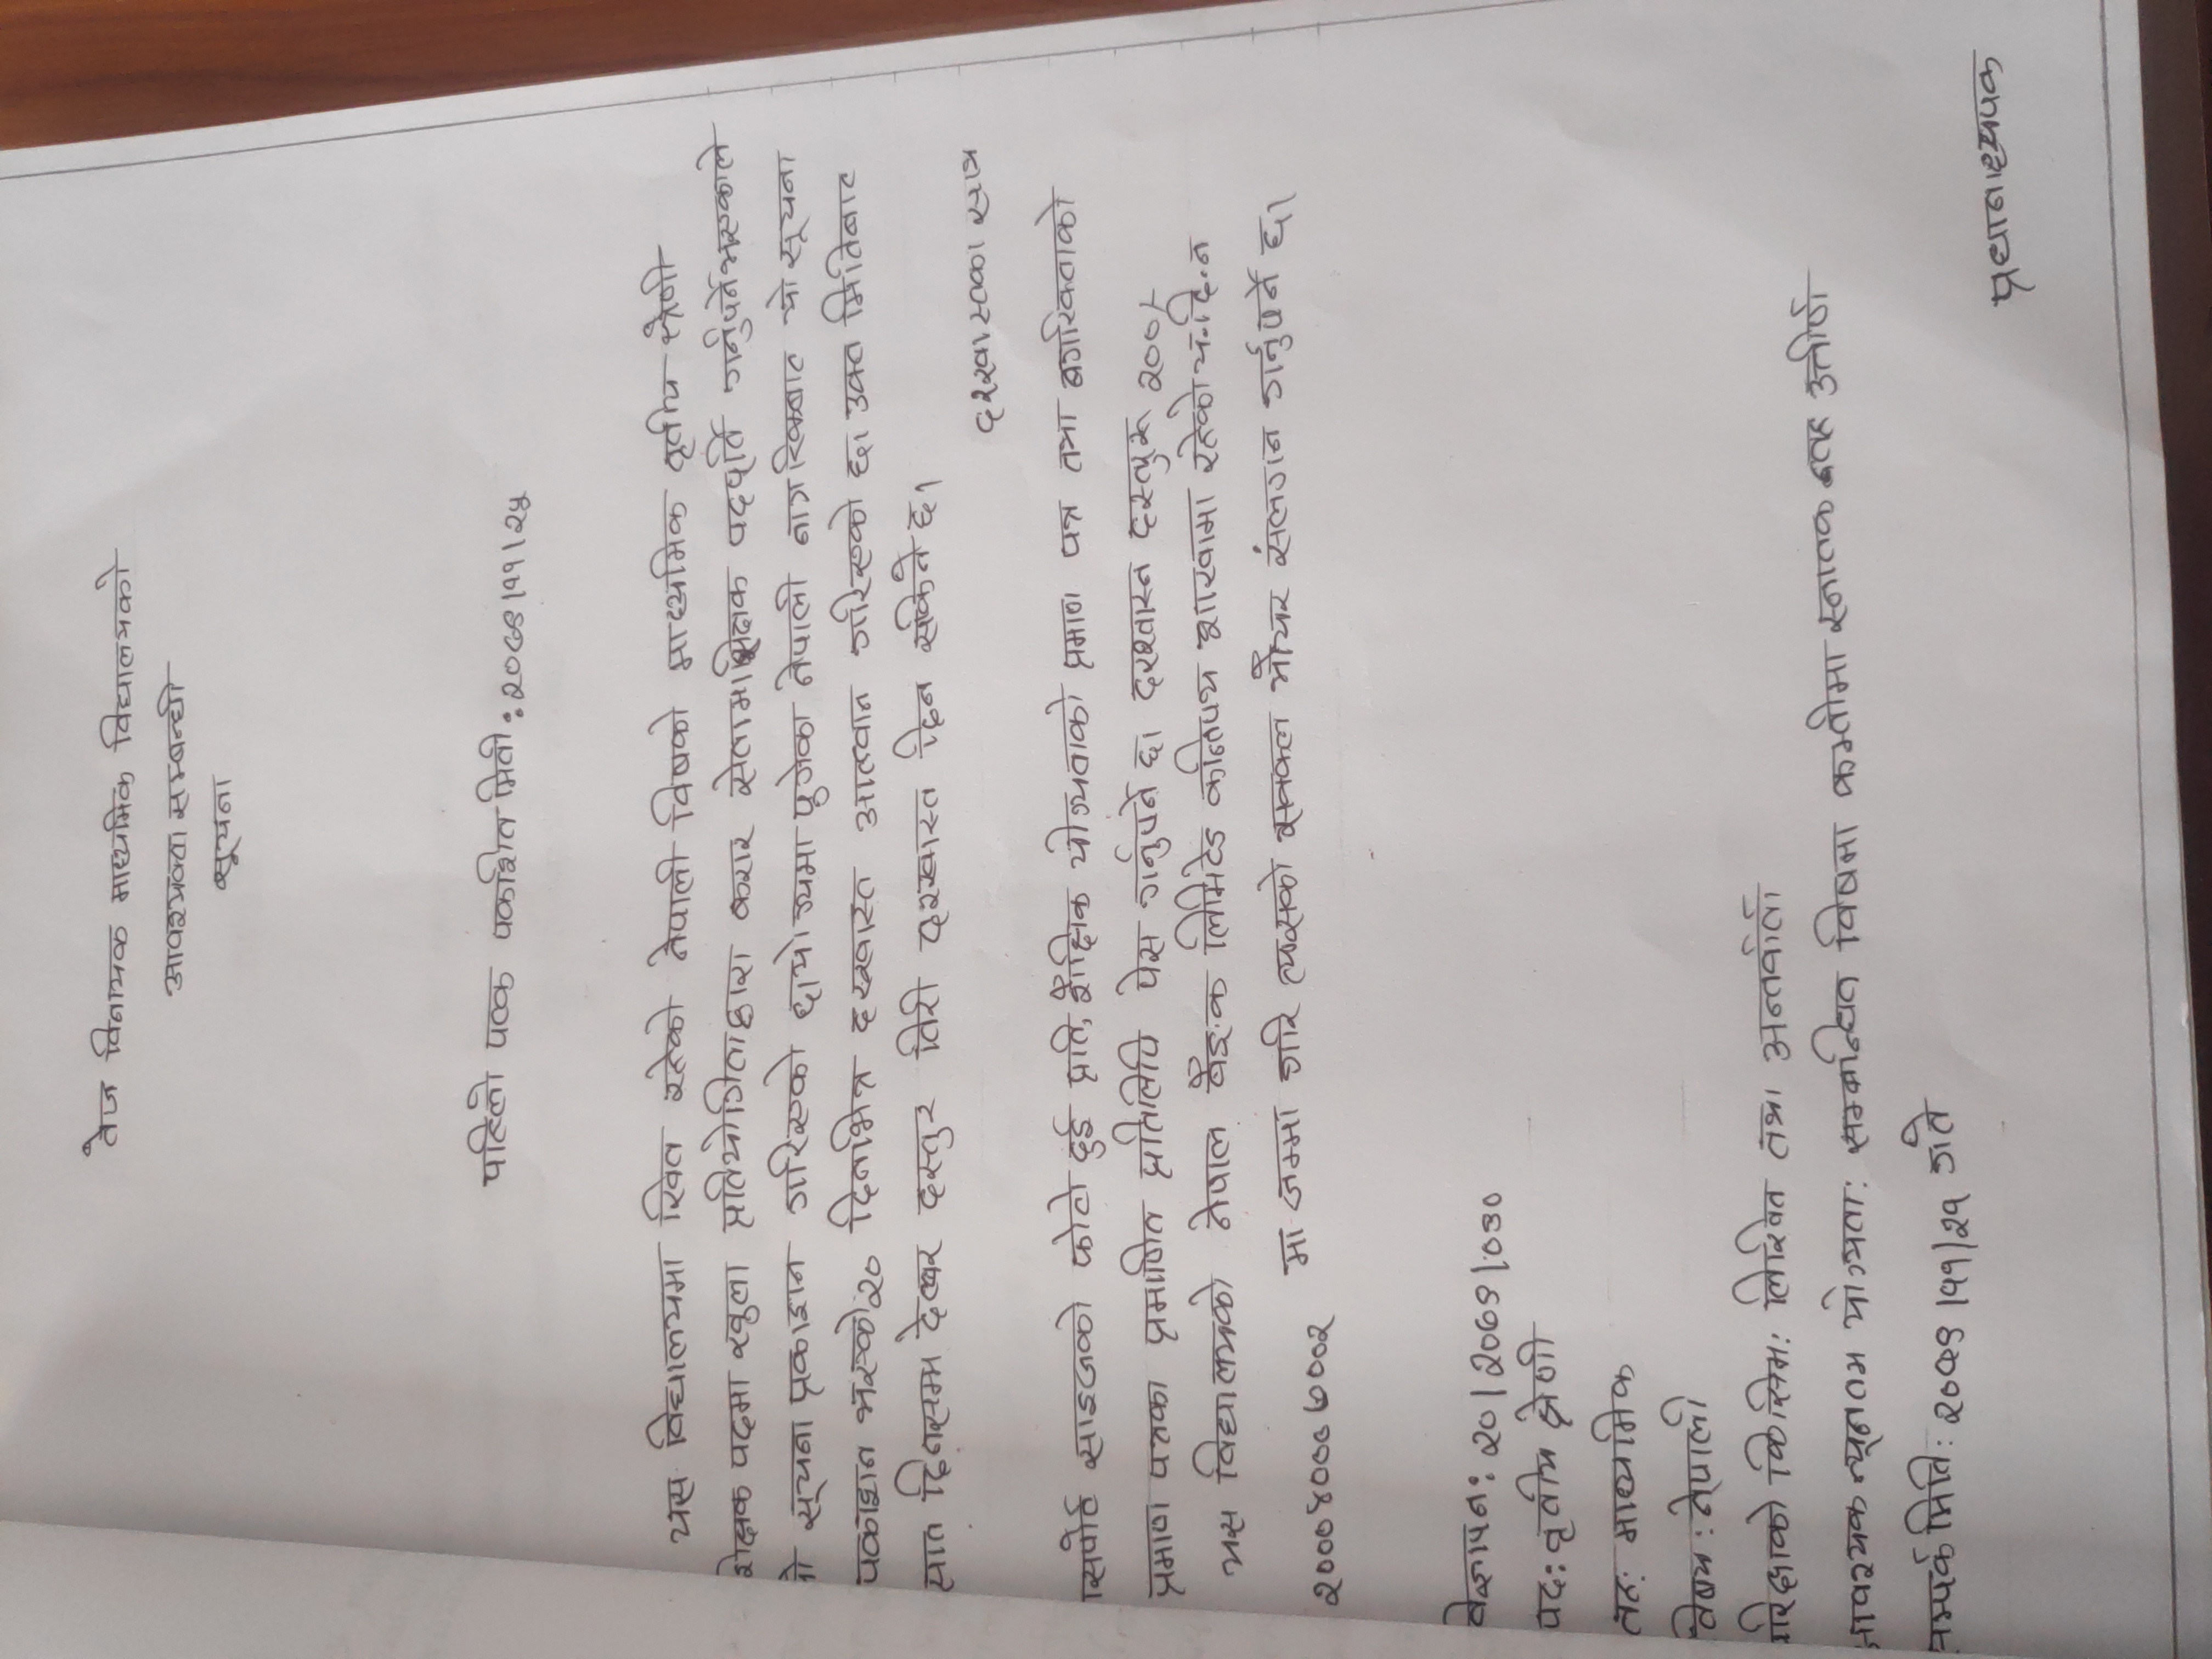 तेज विनायक माध्यमिक विद्यालयको
आवश्यक्ता सम्बन्धी
सूचना
पहिलो पटक पकाशित मिती: २०७९।११।२५
यस विद्यालयमा रिक्त रहेको नेपाली विषको माध्यमिक तृतीय श्रेणी
शिक्षक पदमा खुला प्रतियोगिताद्वारा करार सेवामा शिक्षक पदपूर्ति गर्नुपर्ने भएकाले
यो सूचना प्रकाशन गरिएको छ। योग्यमा पुगेका नेपाली नागरिकबाट यो सूचना
पकाशन भएको २० दिनभित्र दरखास्त आहवान गरिएको छ। उक्त मितिबाट
सात दिनसम्म देब्बर दस्तुर तिरी दरखास्त दिन सकिने छ।
दरखास्तका साथ
पासपोर्ट साइजको फोटो दुई प्रति, शैक्षिक योग्यताको प्रमाण पत्र तथा नगरिकताको
प्रमाण पत्रका प्रमाणित प्रतिलिपि पेस गर्नुपर्ने छ। दरखास्त दस्तुर रू २००/-
यस विद्यालयको नेपाल बैङ्क लिमिटेड कन्तिपथ शाखामा रहेको च.हि.न
२०००४०००७००२ मा जम्मा गरि त्यसको सक्कल भौचर संलगन गर्नुपर्ने छ।
विज्ञापन: २०।२०७९।०३०
पद: तृतीय श्रेणी
तह: माध्यमिक
विषय: नेपाली
परिक्षाको किसिम: लिखित तथा अन्तर्वार्ता
आवश्यक न्यूनतम योग्यता: सम्बन्धित विषमा कम्तीमा स्नातक तह उत्तीर्ण
सम्पर्क मिति: २०७९।११।२१ गते
प्रधानाध्यपक